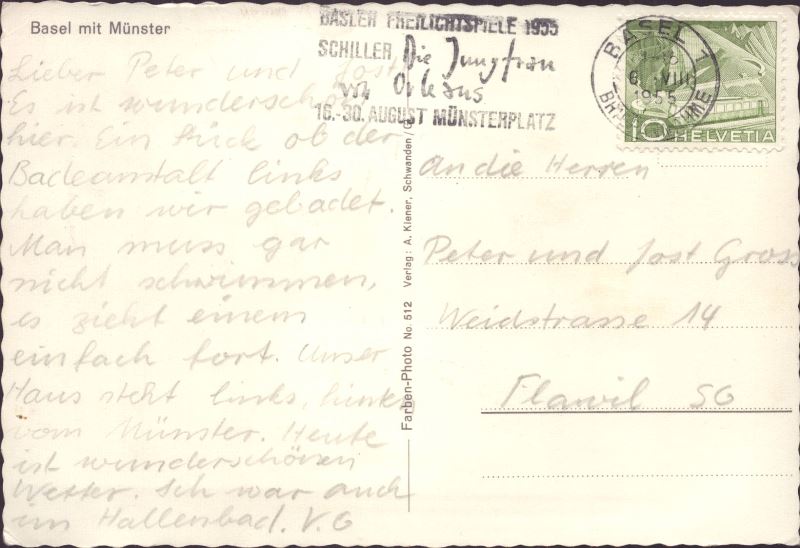 Basel mit Münster
BASLER FREILICHTSPIELE 1955
SCHILLER Die Jungfrau
von Orleans
16.-30. AUGUST MÜNSTERPLATZ
BASEL 1
6. VIII
1955
10 HELVETIA
Lieber Peter und Jost
Es ist wunderschön
hier. Ein Stück ob der
Badeanstalt links
haben wir gebadet.
Man muss gar
nicht schwimmen,
es zieht einem
einfach fort. Unser
Haus steht links, links
vom Münster. Heute
ist wunderschönen
Wetter. Ich war auch
im Hallenbad. V. G
Farben-Photo No. 512 Verlag: A. Kiener, Schwanden/G
An die Herren
Peter und Jost Gross
Weidstrasse 14
Flawil SG